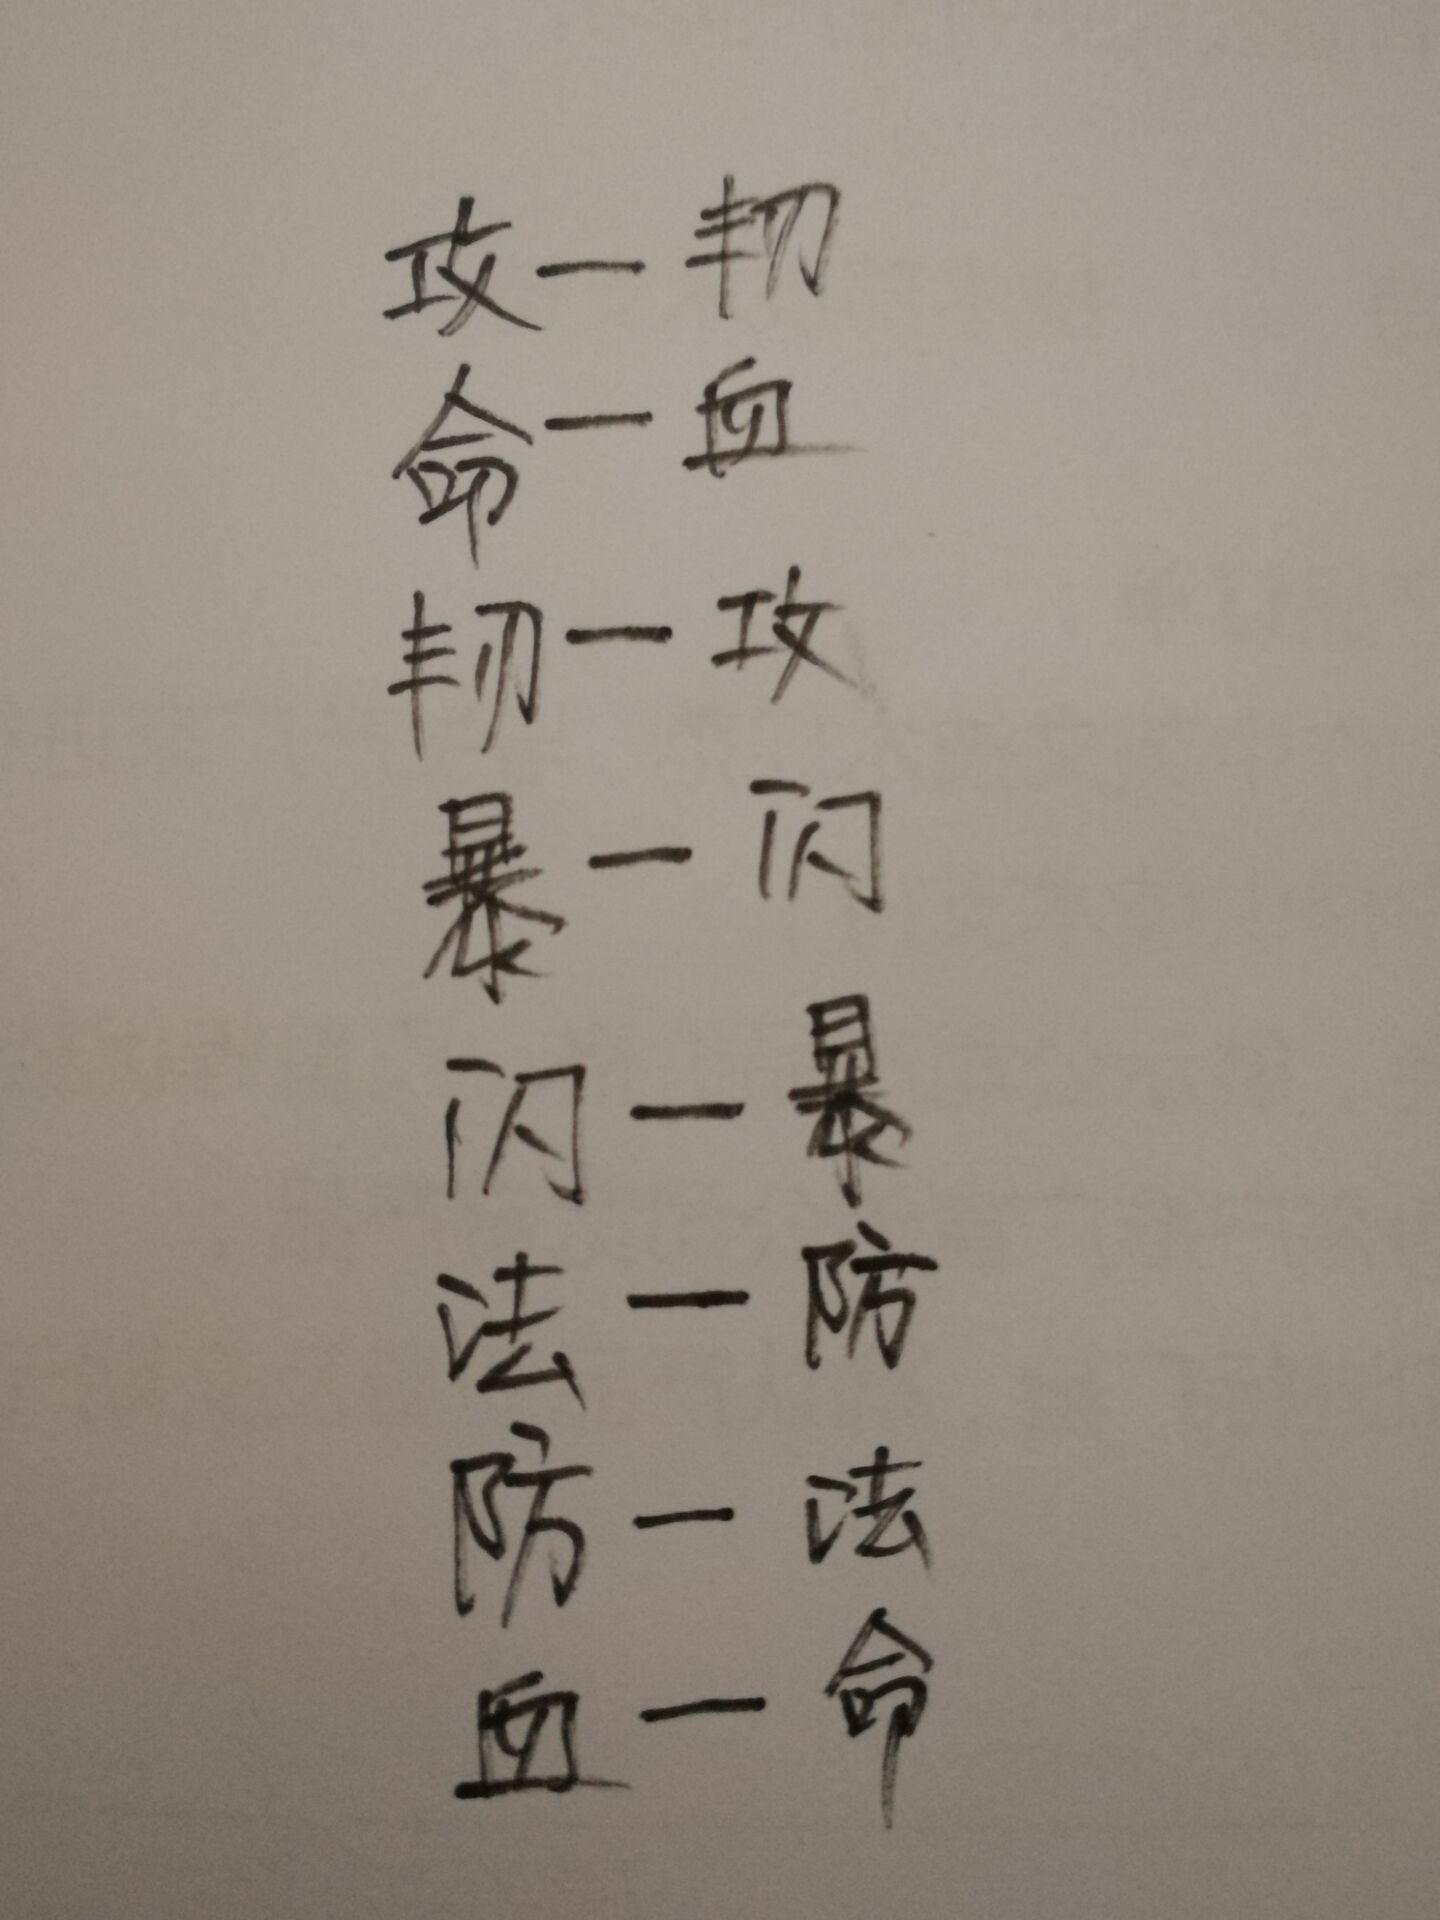 攻一韧
命一血
韧一攻
暴一闪
闪一暴
法一防
防一法
血一命